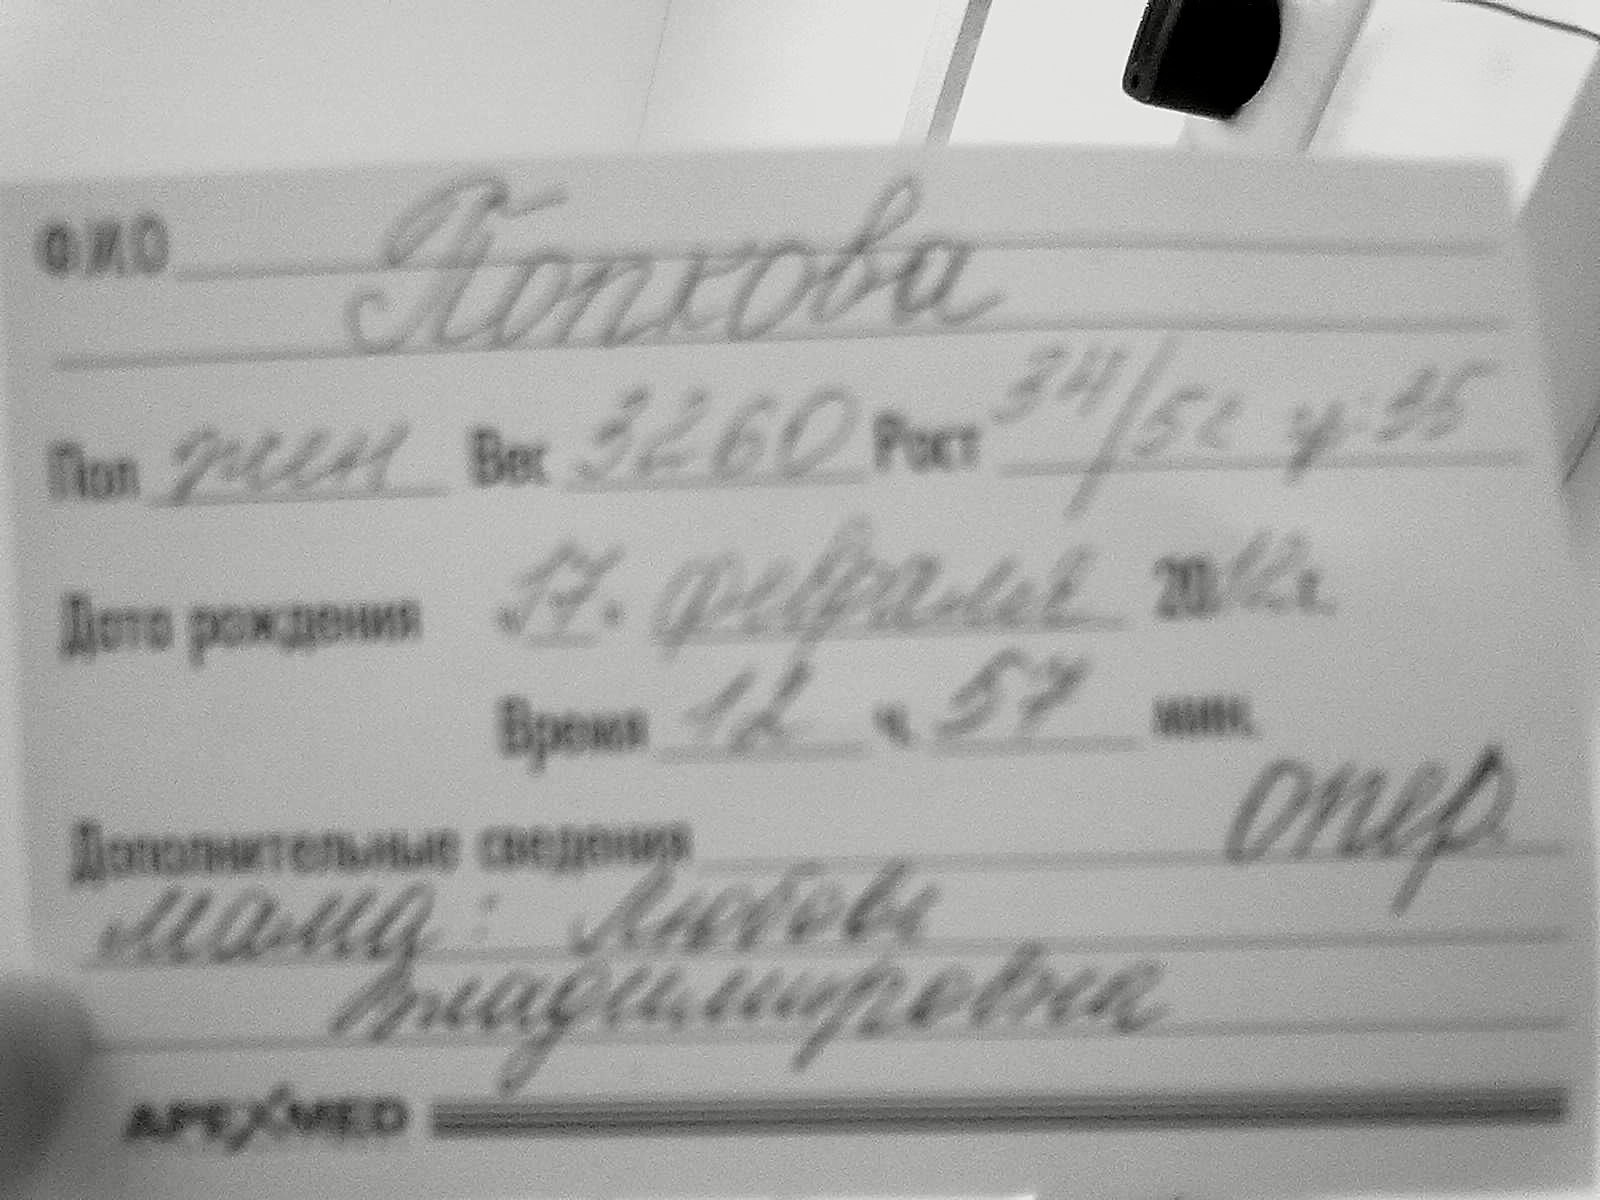 Ф.И.О Попкова
Пол жен Вес 3260 Рост 34/52 г-35
Дата рождения «17» февраля 2012 г.
Время 12 ч. 57 мин.
Дополнительные сведения опер
мама: Любовь
Владимировна
APEXMED